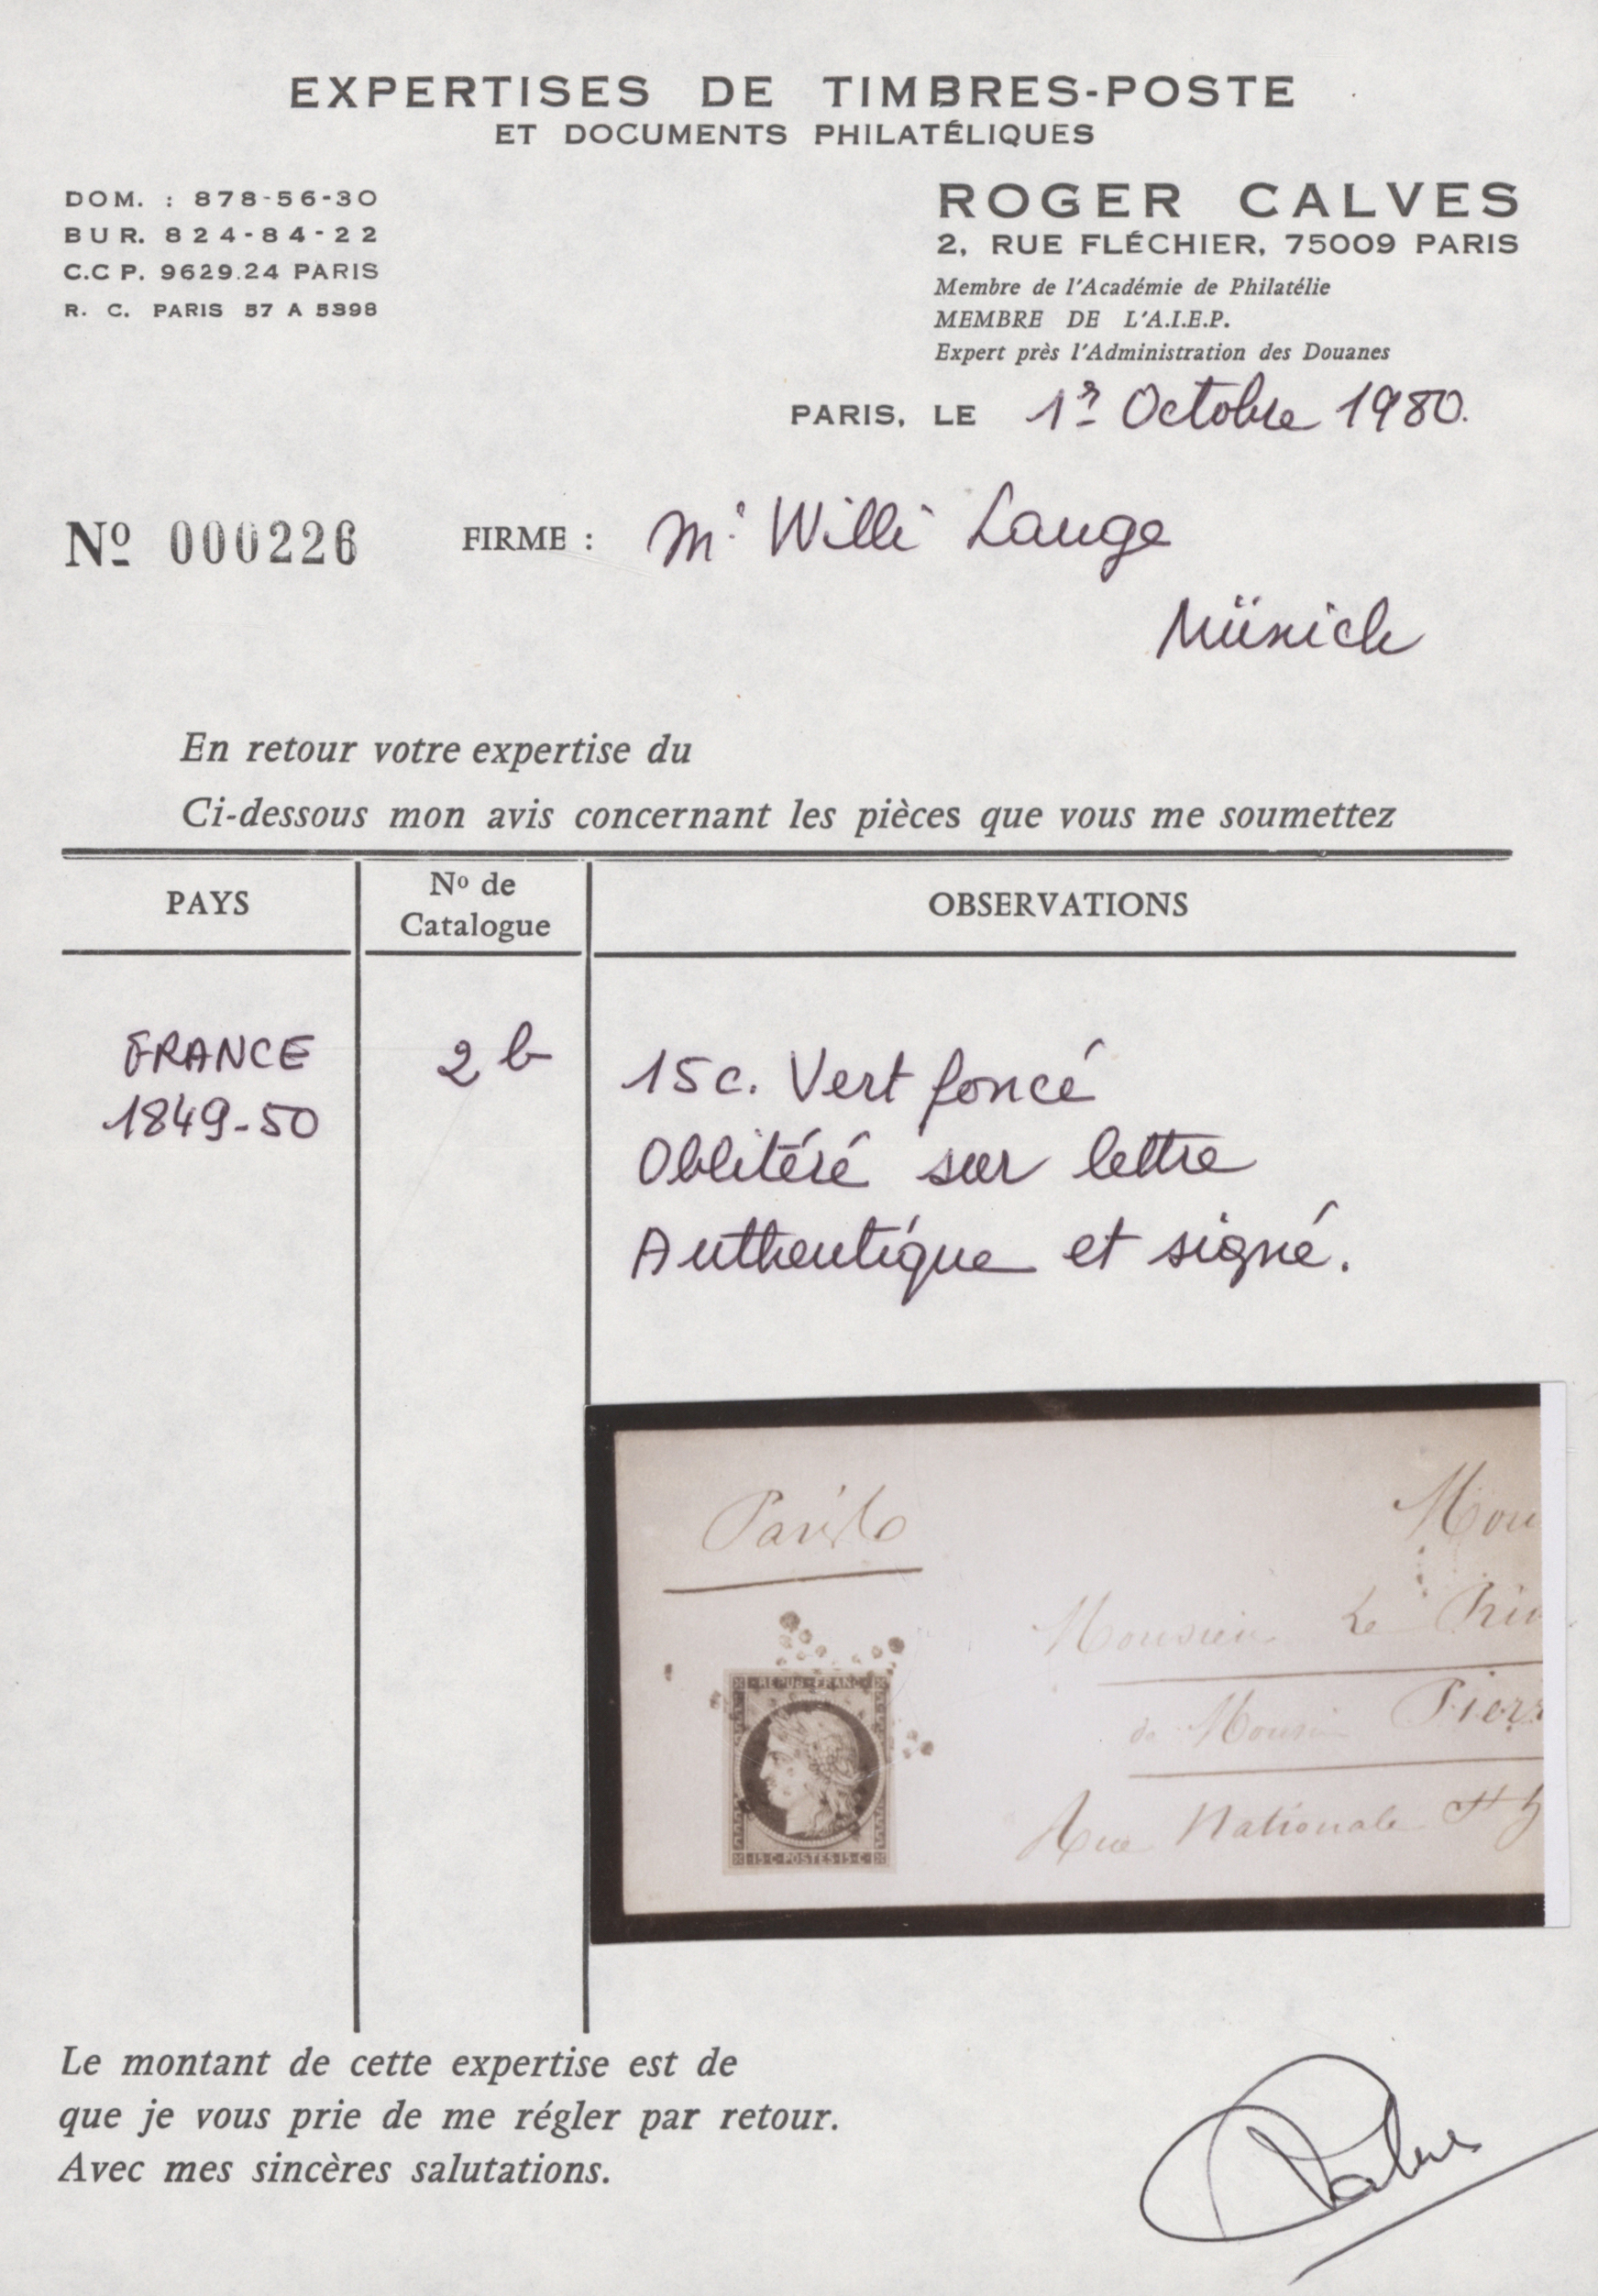 EXPERTISES DE TIMBRES-POSTE
ET DOCUMENTS PHILATÉLIQUES
DOM. : 878-56-30
BUR. 824-84-22
C.C P. 9629.24 PARIS
R. C. PARIS 57 A 5398
ROGER CALVES
2, RUE FLÉCHIER, 75009 PARIS
Membre de l'Académie de Philatélie
MEMBRE DE L'A.I.E.P.
Expert près l'Administration des Douanes
PARIS, LE 1er Octobre 1980.
Nº 000226 FIRME : Mr Willi Lange
Münich
En retour votre expertise du
Ci-dessous mon avis concernant les pièces que vous me soumettez
PAYS
Nº de
Catalogue
OBSERVATIONS
FRANCE
1849-50
2 b
15c. Vert foncé
Oblitéré sur lettre
Authentique et signé.
Mon
Monsieur Le
de Pierr
Rue Nationale
REPUB FRANC
15 C POSTES 15 C
Le montant de cette expertise est de
que je vous prie de me régler par retour.
Avec mes sincères salutations.
Calves